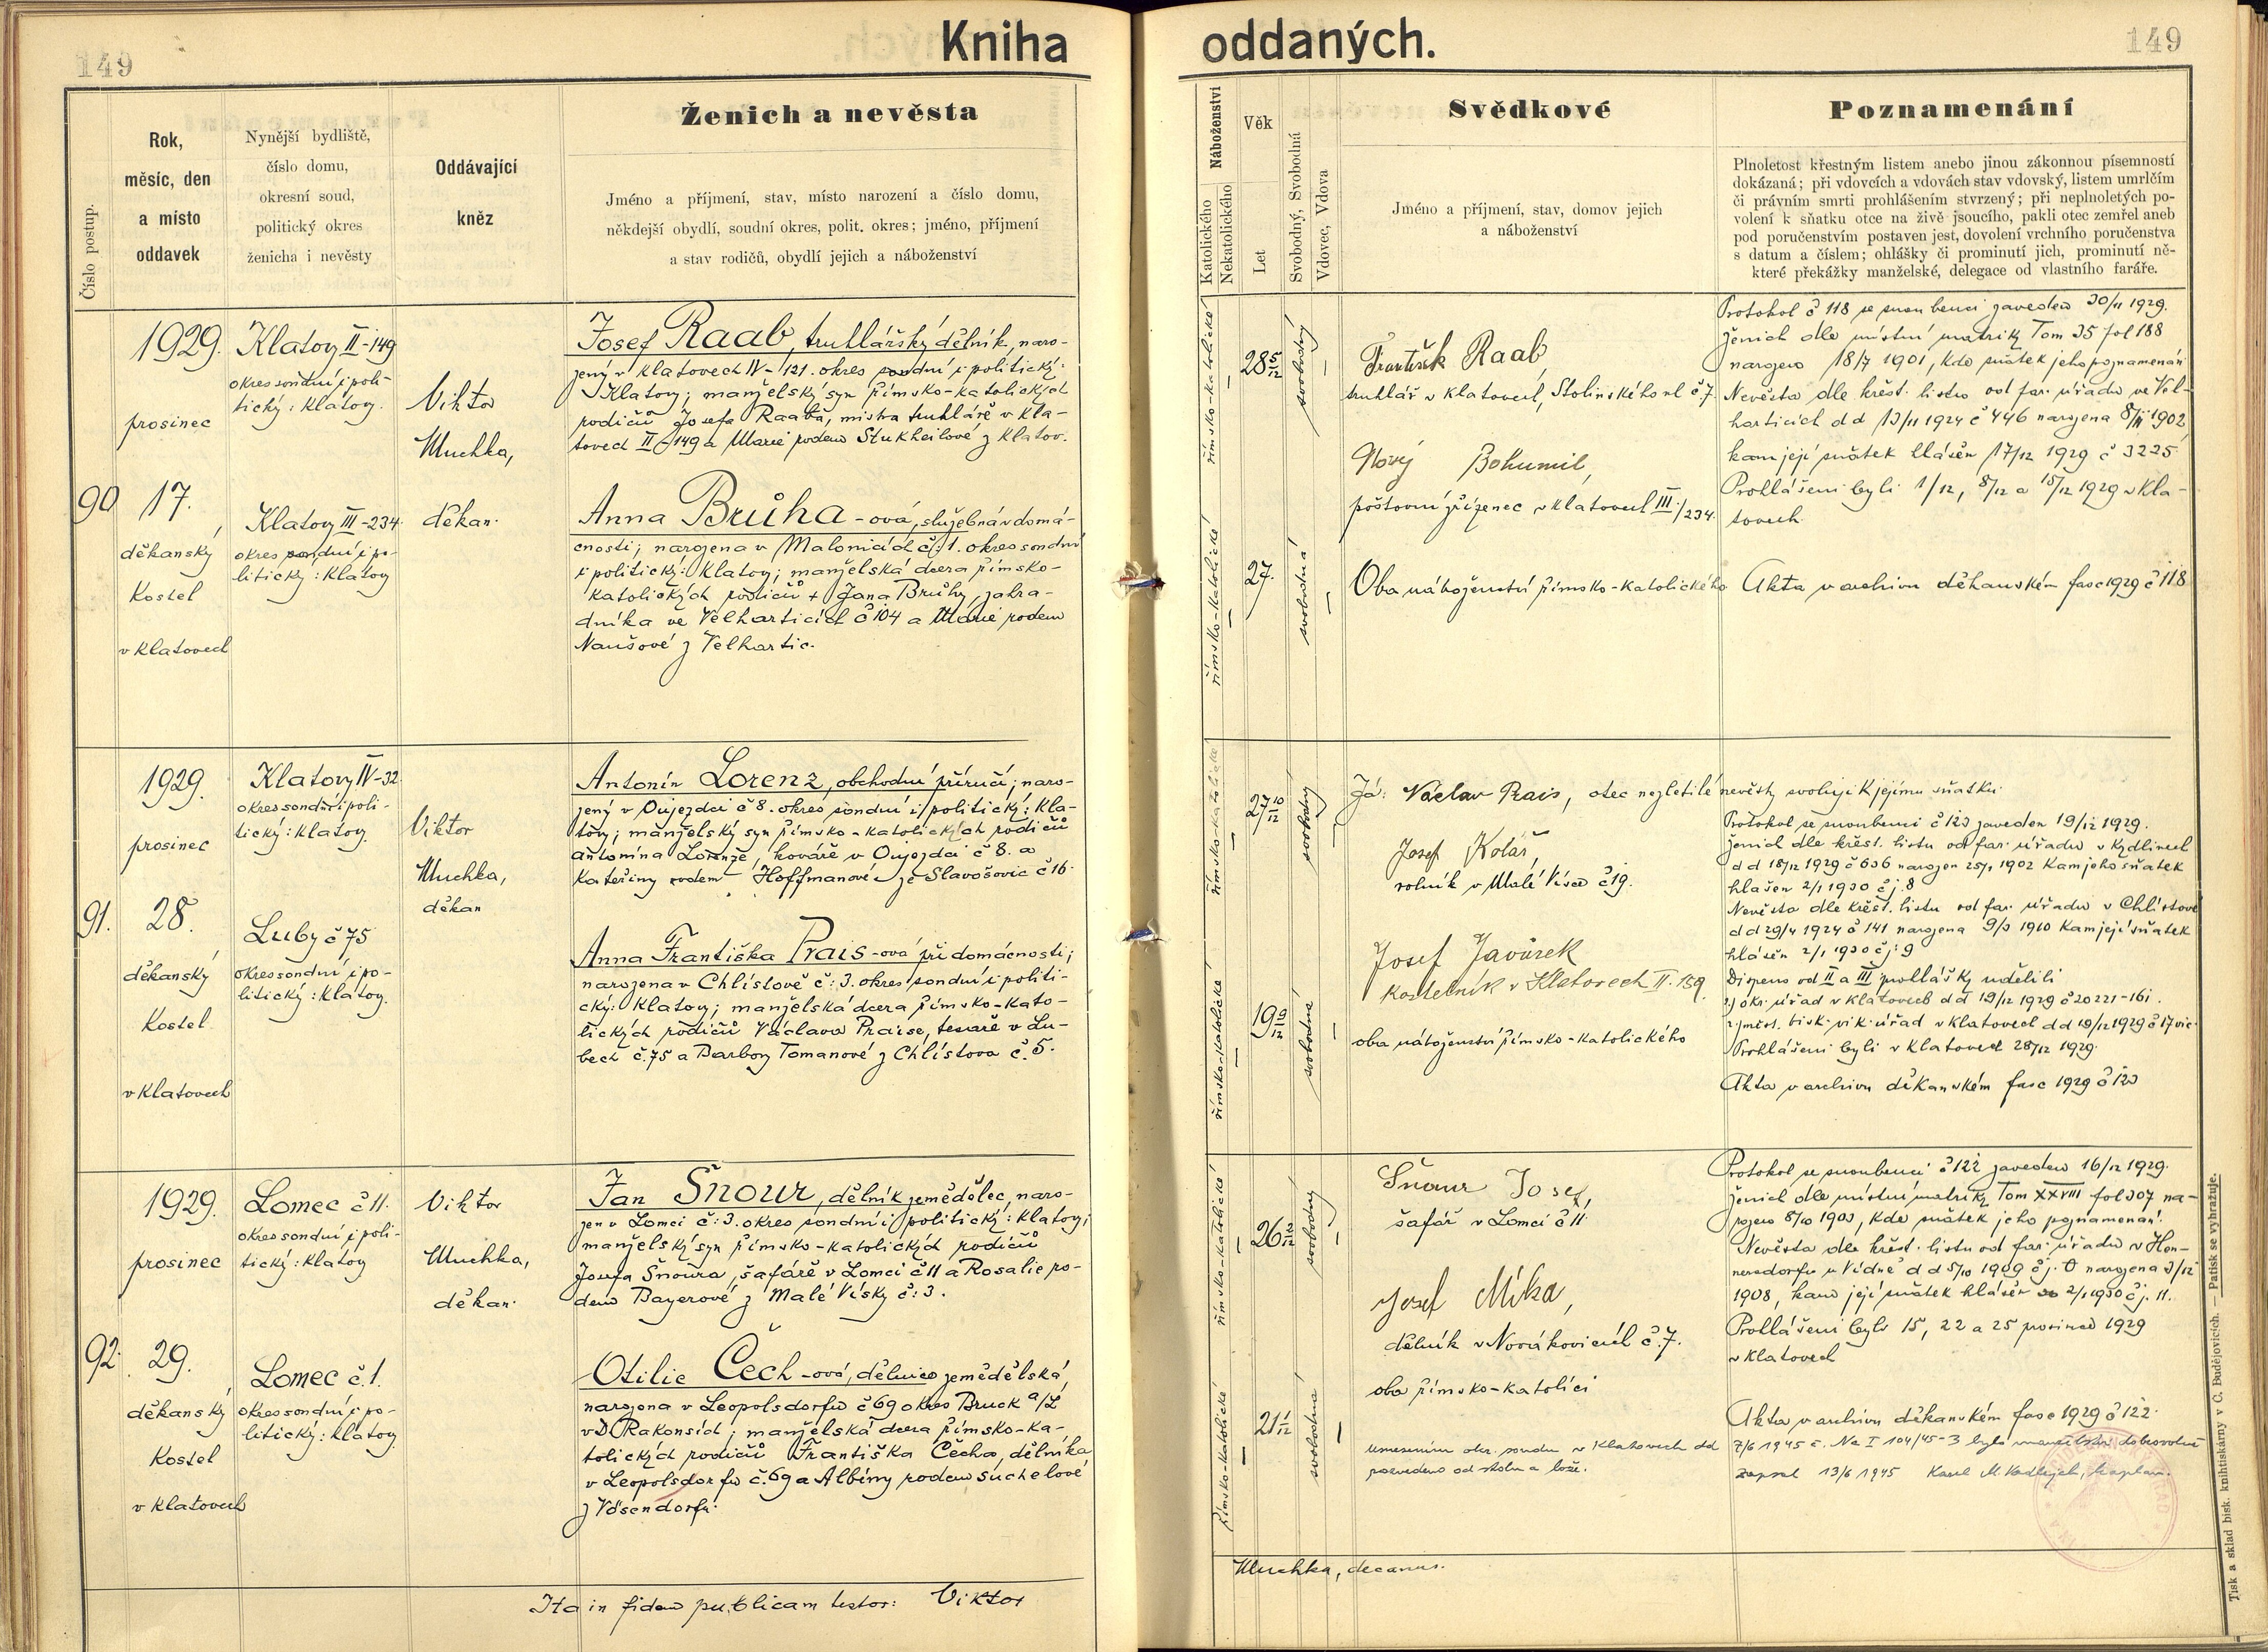 149
Kniha oddaných.
149
Číslo postup.
Rok,
měsíc, den
a místo
oddavek
Nynější bydliště,
číslo domu,
okresní soud,
politický okres
ženicha i nevěsty
Oddávající
kněz
Ženich a nevěsta
Jméno a příjmení, stav, místo narození a číslo domu,
někdejší obydlí, soudní okres, polit. okres; jméno, příjmení
a stav rodičů, obydlí jejich a náboženství
Náboženství
Katolického
Nekatolického
Věk
Let
Svobodný, Svobodná
Vdovec, Vdova
Svědkové
Jméno a příjmení, stav, domov jejich
a náboženství
Poznamenání
Plnoletost křestným listem anebo jinou zákonnou písemností
dokázaná; při vdovcích a vdovách stav vdovský, listem umrlčím
či právním smrti prohlášením stvrzený; při neplnoletých po-
volení k sňatku otce na živě jsoucího, pakli otec zemřel aneb
pod poručenstvím postaven jest, dovolení vrchního poručenstva
s datum a číslem; ohlášky či prominutí jich, prominutí ně-
které překážky manželské, delegace od vlastního faráře.
90
1929.
prosinec
17.
děkanský
Kostel
v Klatovech
Klatovy II-149
okres soudní i poli-
tický: Klatovy.
Klatovy III-234.
okres soudní i po-
litický: Klatovy
Viktor
Muchka,
děkan.
Josef Raab, truhlářský dělník, naro-
zený v Klatovech IV-121. okres soudní i politický:
Klatovy; manželský syn římsko-katolických
rodičů Josefa Raaba, mistra truhláře v Kla-
tovech II-149 a Marie rodem Stukheilové z Klatov.
Anna Brůha-ová, služebná v domá-
cnosti; narozena v Malonicích č: 1. okres soudní
i politický: Klatovy; manželská dcera římsko-
katolických rodičů + Jana Brůhy, zahra-
dníka ve Velharticích č 104 a Marie rodem
Naušové z Velhartic.
římsko-katolické
28 5/12
svobodný
římsko-katolické
27.
svobodná
František Raab,
truhlář v Klatovech, Stolinského ul č 7.
Nový Bohumil,
poštovní zřízenec v Klatovech III./234.
Oba náboženství římsko-katolického
Protokol č 118 se snoubenci zaveden 30/11 1929.
Ženich dle místní matriky Tom 35 fol 188
narozen 18/7 1901, kde sňatek jeho poznamenán
Nevěsta dle křest. listu od far. úřadu ve Vel-
harticích d d 13/11 1924 č 446 narozena 8/11 1902
kam její sňatek hlášen 17/12 1929 č 3225
Prohlášeni byli 1/12, 8/12 a 15/12 1929 v Kla-
tovech.
Akta v archivu děkanském fasc 1929 č 118
91.
1929.
prosinec
28.
děkanský
Kostel
v Klatovech
Klatovy IV-32
okres soudní i poli-
tický: Klatovy.
Luby č 75
okres soudní i po-
litický: Klatovy.
Viktor
Muchka,
děkan
Antonín Lorenz, obchodní příručí; naro-
zený v Oujezdci č 8. okres soudní i politický: Kla-
tovy; manželský syn římsko-katolických rodičů
Antonína Lorenze, kováře v Oujezdci č 8. a
Kateřiny rodem Hoffmanové ze Slavošovic č 16.
Anna Františka Prais-ová při domácnosti;
narozena v Chlistově č: 3. okres soudní i politi-
cký: Klatovy; manželská dcera římsko-kato-
lických rodičů Václava Praise, tesaře v Lu-
bech č. 75 a Barbory Tomanové z Chlístova č. 5.
římsko-katolické
27 10/12
svobodný
římsko-katolické
19 9/12
svobodná
Já: Václav Prais, otec nezletilé nevěsty svoluji k jejímu sňatku.
Josef Kolář,
rolník v Malé Vísce č 19.
Josef Javůrek
kostelník v Klatovech II. 159.
oba náboženství římsko-katolického
Protokol se snoubenci č 123 zaveden 19/12 1929.
Ženich dle křest. listu od far. úřadu v Kydlinech
d d 18/12 1929 č 636 narozen 25/1 1902 Kam jeho sňatek
hlášen 2/1 1930 č j. 8
Nevěsta dle křest. listu od far. úřadu v Chlistově
d d 29/4 1924 č 141 narozena 9/3 1910 Kam její sňatek
hlášen 2/1 1930 č j: 9
Dispens od II a III prohlášky udělili
1) okr. úřad v Klatovech d d 19/12 1929 č 20221-16i.
2) měst. bisk. vik. úřad v Klatovech d d 19/12 1929 č 17 vic.
Prohlášeni byli v Klatovech 28/12 1929.
Akta v archivu děkanském fasc 1929 č 123
92.
1929.
prosinec
29.
děkanský
Kostel
v Klatovech
Lomec č 11.
okres soudní i poli-
tický: Klatovy
Lomec č. 1.
okres soudní i po-
litický: Klatovy
Viktor
Muchka,
děkan.
Jan Šnour, dělník zemědělec, naro-
zen v Lomci č: 3. okres soudní i politický: Klatovy;
manželský syn římsko-katolických rodičů
Josefa Šnoura, šafáře v Lomci č 11 a Rosalie ro-
dem Bayerové z Malé Vísky č: 3.
Otilie Čech-ová, dělnice zemědělská,
narozena v Leopolsdorfu č 69 okres Bruck a/L
v D. Rakousích; manželská dcera římsko-ka-
tolických rodičů Františka Čecha, dělníka
v Leopolsdorfu č. 69 a Albíny rodem Suchelové
z Vösendorfu.
římsko-katolické
26 2/12
svobodný
římsko-katolické
21 1/12
svobodná
Šnour Josef,
šafář v Lomci č 11.
Josef Míka,
dělník v Novákovicích č. 7.
oba římsko-katolíci
Protokol se snoubenci č 122 zaveden 16/12 1929.
Ženich dle místní matriky Tom XXVIII fol 307 na-
rozen 8/10 1903, kde sňatek jeho poznamenán.
Nevěsta dle křest. listu od far. úřadu v Hen-
nersdorfu u Vídně d d 5/10 1909 č j. 0 narozena 3/12
1908, kam její sňatek hlášen 2/1 1930 č j. 11.
Prohlášeni byli 15, 22 a 25 prosince 1929
v Klatovech
Akta v archivu děkanském fasc 1929 č 122.
Usnesením okr. soudu v Klatovech dd 7/6 1945 č. Nc I 104/45-3 bylo manželství dobrovolně
rozvedeno od stolu a lože.
Zapsal 13/6 1945 Karel M. kaplan.
Ita in fidem publicam testor: Viktor Muchka, decanus.
Tisk a sklad bisk. knihtiskárny v C. Budějovicích. — Patisk se vyhražuje.